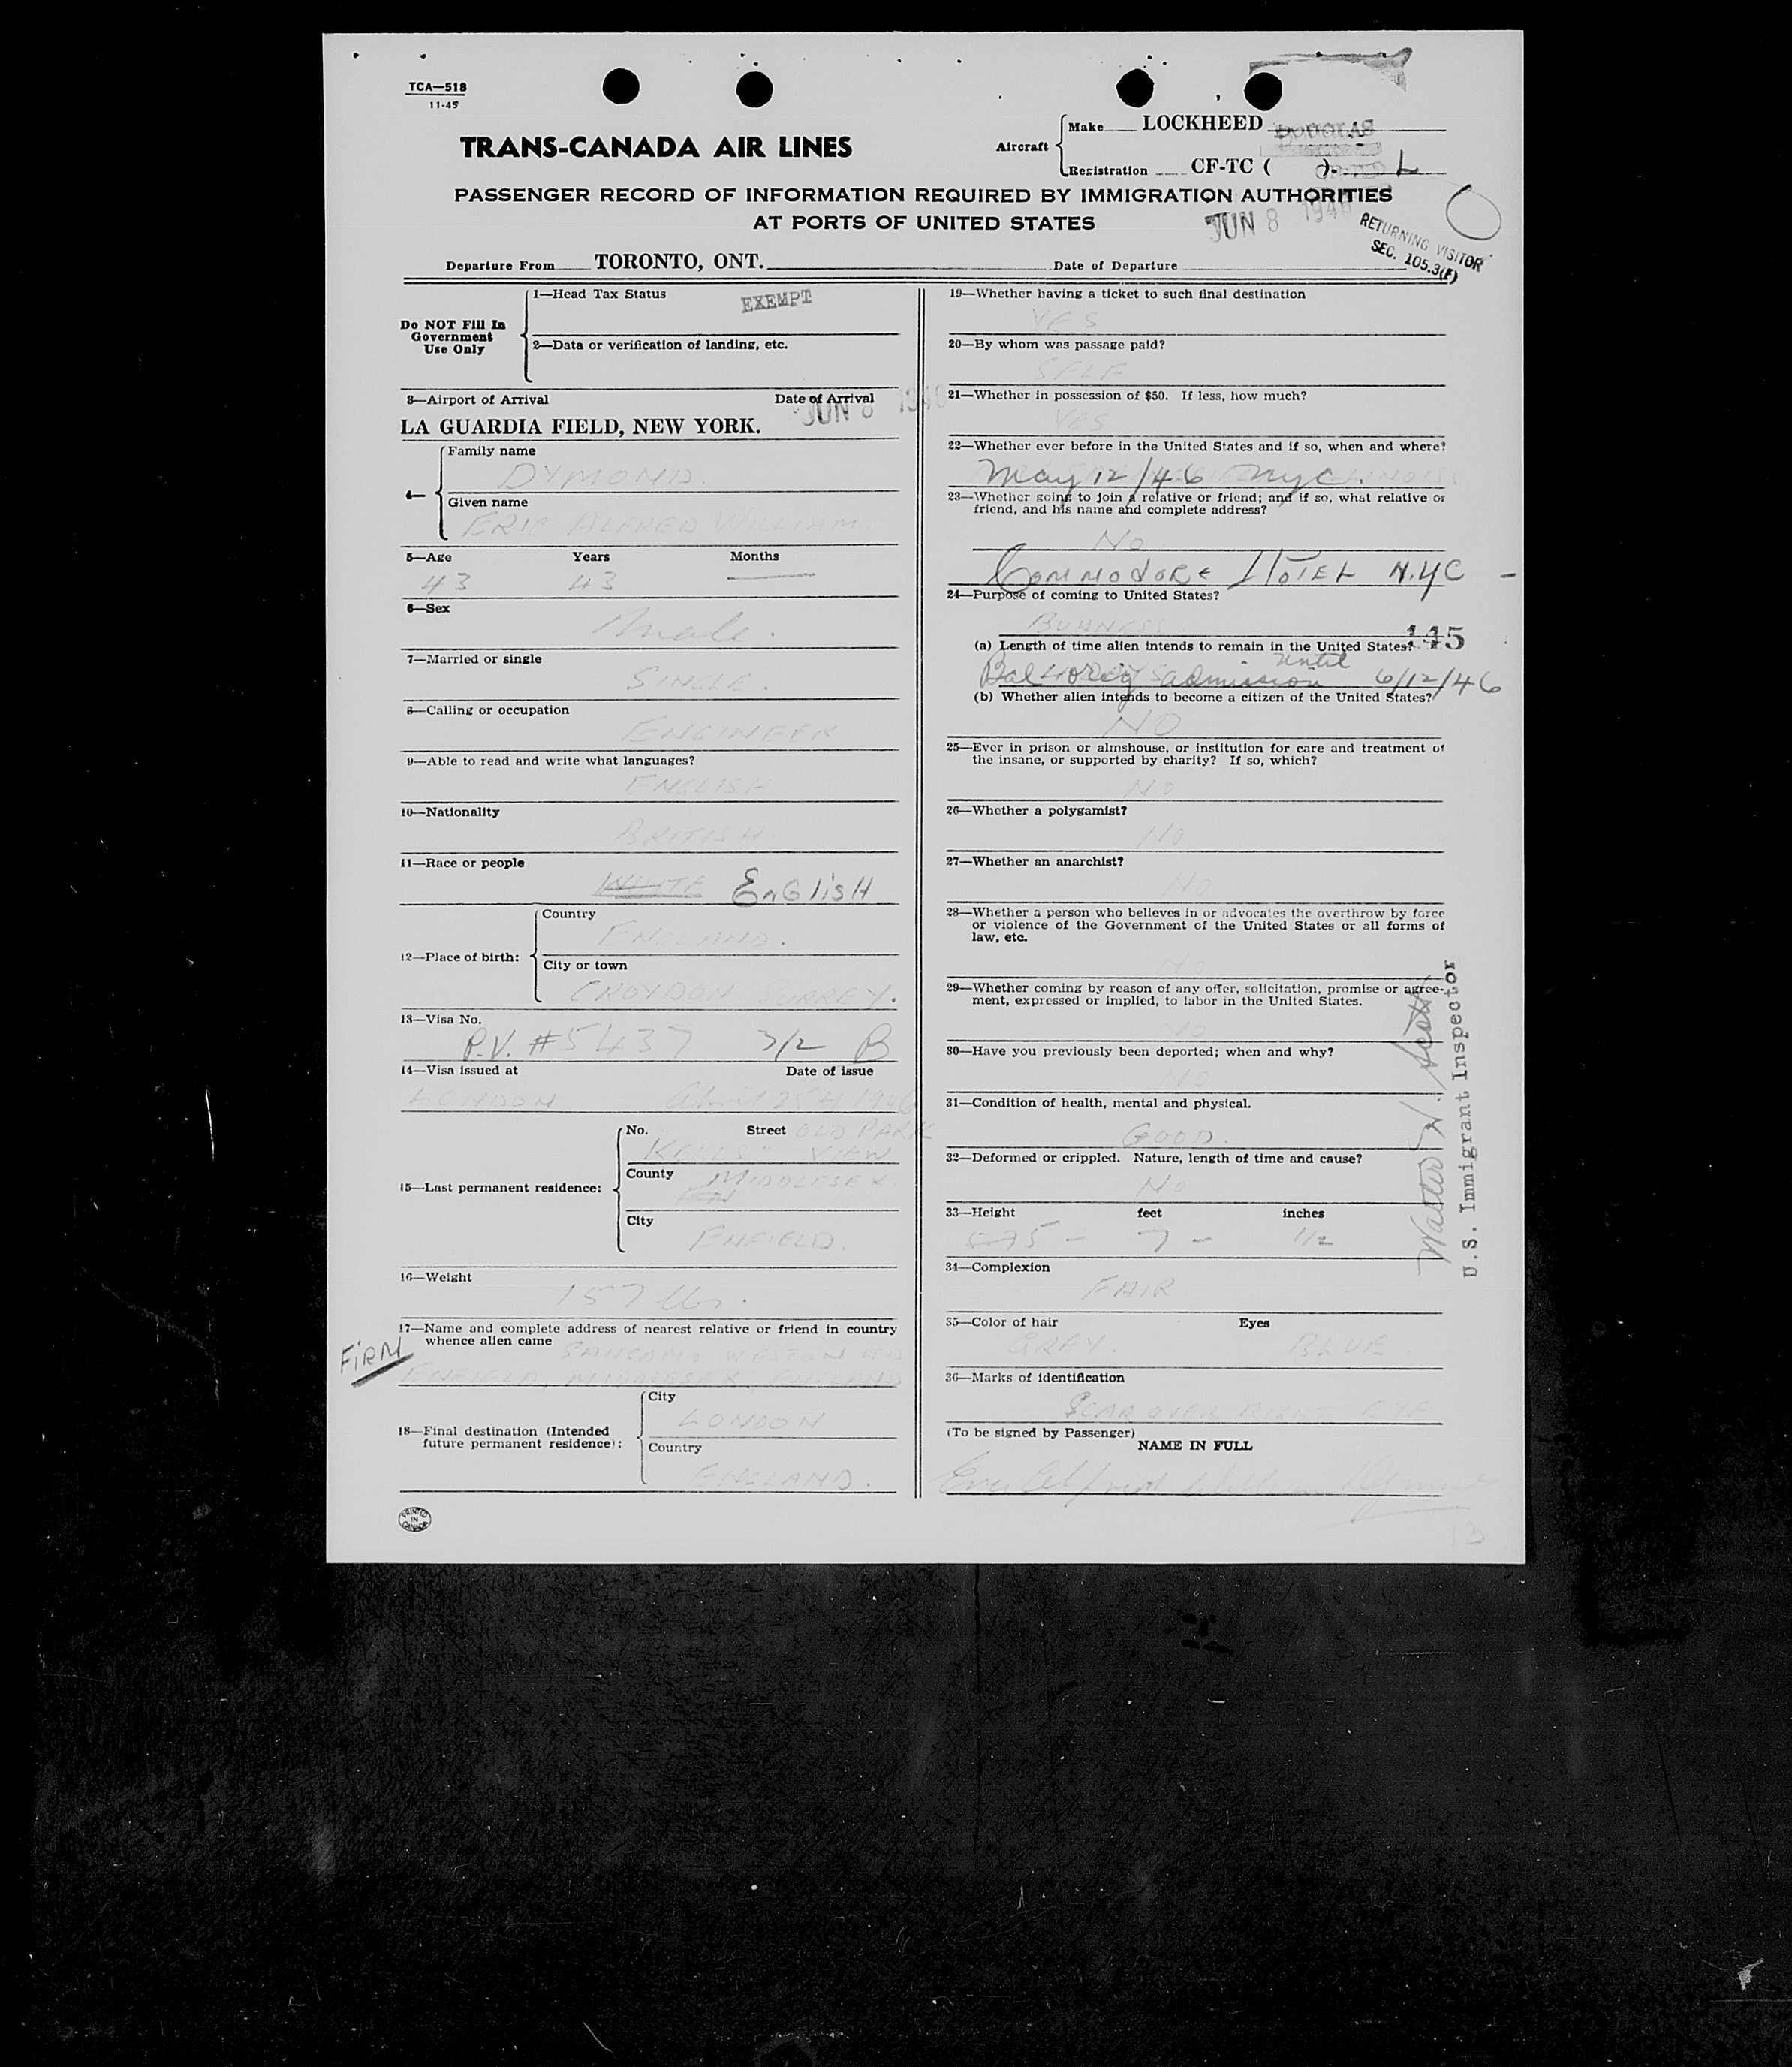 TCA—518
11-45
TRANS-CANADA AIR LINES
Aircraft
Make LOCKHEED DOUGLAS
Registration CF-TC ( ). L
PASSENGER RECORD OF INFORMATION REQUIRED BY IMMIGRATION AUTHORITIES
AT PORTS OF UNITED STATES
JUN 8 1946
RETURNING VISITOR
SEC. 105.3(F)
Departure From TORONTO, ONT. Date of Departure
Do NOT Fill In
Government
Use Only
1—Head Tax Status EXEMPT
2—Data or verification of landing, etc.
3—Airport of Arrival Date of Arrival
JUN 8 1946
LA GUARDIA FIELD, NEW YORK.
4—
Family name
DYMOND.
Given name
ERIC ALFRED WILLIAM
5—Age Years Months
43 43 —
6—Sex
Male.
7—Married or single
SINGLE.
8—Calling or occupation
ENGINEER
9—Able to read and write what languages?
ENGLISH
10—Nationality
BRITISH
11—Race or people
WHITE ENGLISH
12—Place of birth:
Country
ENGLAND.
City or town
CROYDON SURREY.
13—Visa No.
P.V. #5437 3/2 B
14—Visa issued at Date of issue
LONDON 25H 1946
15—Last permanent residence:
No. Street OLD PARK
VIEW
County MIDDLESEX
EN
City
ENFIELD.
16—Weight
157 lbs.
17—Name and complete address of nearest relative or friend in country
whence alien came
FIRM
SANGAMO WESTON LTD
ENFIELD, MIDDLESEX, ENGLAND
18—Final destination (Intended
future permanent residence):
City
LONDON
Country
ENGLAND.
PRINTED
IN
CANADA
19—Whether having a ticket to such final destination
YES
20—By whom was passage paid?
SELF
21—Whether in possession of $50. If less, how much?
YES
22—Whether ever before in the United States and if so, when and where?
May 12/46 NYC.
23—Whether going to join a relative or friend; and if so, what relative or
friend, and his name and complete address?
No
Commodore Hotel N.Y.C —
24—Purpose of coming to United States?
BUSINESS
145
(a) Length of time alien intends to remain in the United States?
Bal orig admission until 6/12/46
(b) Whether alien intends to become a citizen of the United States?
NO
25—Ever in prison or almshouse, or institution for care and treatment of
the insane, or supported by charity? If so, which?
NO
26—Whether a polygamist?
NO
27—Whether an anarchist?
NO
28—Whether a person who believes in or advocates the overthrow by force
or violence of the Government of the United States or all forms of
law, etc.
NO
29—Whether coming by reason of any offer, solicitation, promise or agree-
ment, expressed or implied, to labor in the United States.
NO
30—Have you previously been deported; when and why?
NO
31—Condition of health, mental and physical.
GOOD.
32—Deformed or crippled. Nature, length of time and cause?
No
33—Height feet inches
5 - 7 - 1/2
34—Complexion
FAIR
35—Color of hair Eyes
GREY. BLUE
36—Marks of identification
SCAR OVER RIGHT EYE
(To be signed by Passenger)
NAME IN FULL
Eric Alfred William Dymond
Walter N. Scott
U.S. Immigrant Inspector